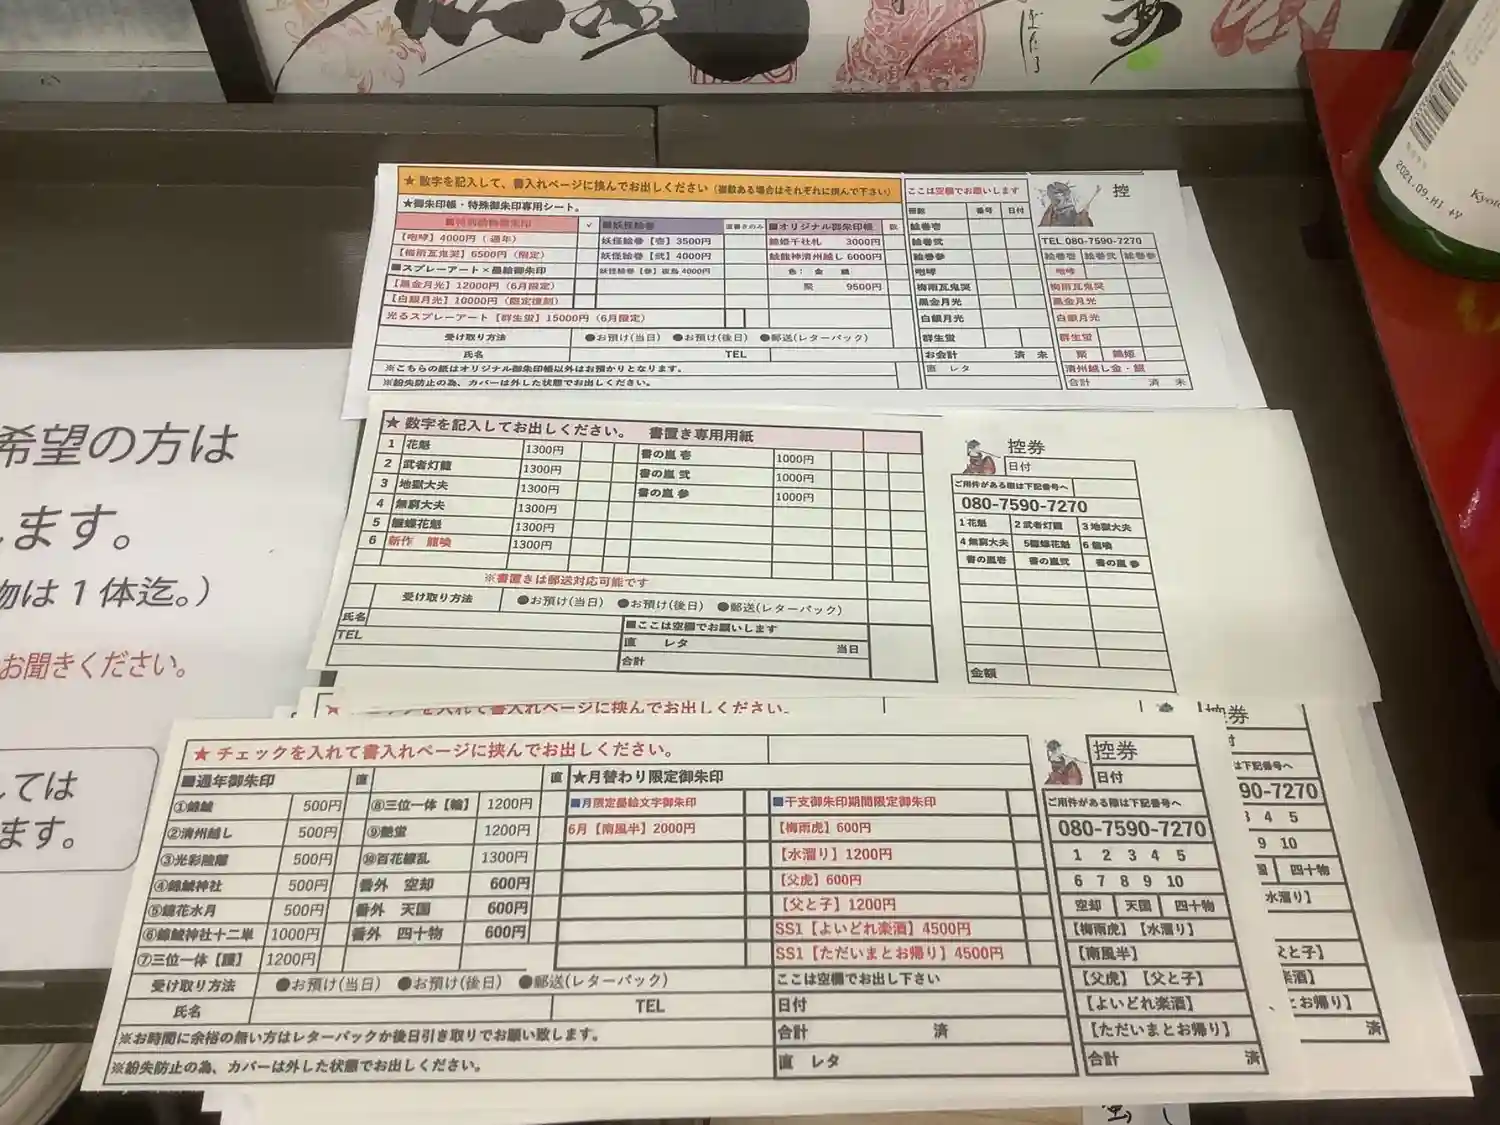 ★ 数字を記入して、書入れページに挟んでお出しください（複数ある場合はそれぞれに挟んで下さい）
★御朱印帳・特殊御朱印専用シート。
✓ ■妖怪絵巻 直書きのみ ■オリジナル御朱印帳 数
【咆哮】4000円（通年） 妖怪絵巻【壱】3500円 千社札 3000円
【梅雨瓦鬼哭】6500円（限定） 妖怪絵巻【弐】4000円 清州越し 6000円
■スプレーアート×墨絵御朱印 妖怪絵巻【参】 4000円 色： 金 銀
【黒金月光】12000円（6月限定） 聚 9500円
【白銀月光】10000円（限定復刻）
光るスプレーアート【群生蛍】15000円（6月限定）
受け取り方法 ●お預け(当日) ●お預け(後日) ●郵送(レターパック)
氏名 TEL
※こちらの紙はオリジナル御朱印帳以外はお預かりとなります。
※紛失防止の為、カバーは外した状態でお出しください。
ここは空欄でお願いします
種類 番号 日付
絵巻壱
絵巻弐
絵巻参
咆哮
梅雨瓦鬼哭
黒金月光
白銀月光
群生蛍
お会計 済 未
直 レタ
控
TEL 080-7590-7270
絵巻壱 絵巻弐 絵巻参
咆哮
梅雨瓦鬼哭
黒金月光
白銀月光
群生蛍
聚
清州越し金・銀
合計 済 未
★ 数字を記入してお出しください。 書置き専用用紙
1 花魁 1300円 書の嵐 壱 1000円
2 武者灯籠 1300円 書の嵐 弐 1000円
3 地獄大夫 1300円 書の嵐 参 1000円
4 無窮大夫 1300円
5 花魁 1300円
6 新作 1300円
※書置きは郵送対応可能です
受け取り方法 ●お預け(当日) ●お預け(後日) ●郵送(レターパック)
氏名 ■ここは空欄でお願いします
TEL 直 レタ 当日
合計
控券
日付
ご用件がある際は下記番号へ
080-7590-7270
1 花魁 2 武者灯籠 3 地獄大夫
4 無窮大夫 5 花魁 6
書の嵐壱 書の嵐弐 書の嵐 参
金額
入れて書入れページに挟んでお出しください。
★ チェックを入れて書入れページに挟んでお出しください。
■通年御朱印 直 直 ★月替わり限定御朱印
① 500円 ⑧三位一体【輪】 1200円 ■月限定墨絵文字御朱印 ■干支御朱印期間限定御朱印
②清州越し 500円 ⑨ 1200円 6月【南風半】2000円 【梅雨虎】600円
③光彩陸離 500円 ⑩百花繚乱 1300円 【水溜り】1200円
④ 神社 500円 番外 空却 600円 【父虎】600円
⑤鏡花水月 500円 番外 天国 600円 【父と子】1200円
⑥ 神社十二単 1000円 番外 四十物 600円 SS1【よいどれ楽酒】4500円
⑦三位一体【護】 1200円 SS1【ただいまとお帰り】4500円
受け取り方法 ●お預け(当日) ●お預け(後日) ●郵送(レターパック) ここは空欄でお出し下さい
氏名 TEL 日付
※お時間に余裕の無い方はレターパックか後日引き取りでお願い致します。 合計 済
※紛失防止の為、カバーは外した状態でお出しください。 直 レタ
控券
日付
ご用件がある際は下記番号へ
080-7590-7270
1 2 3 4 5
6 7 8 9 10
空却 天国 四十物
【梅雨虎】【水溜り】
【南風半】
【父虎】【父と子】
【よいどれ楽酒】
【ただいまとお帰り】
合計 済
控券
付
下記番号へ
90-7270
3 4 5
9 10
国 四十物
水溜り】
父と子】
楽酒】
とお帰り】
済
希望の方は
します。
物は１体迄。）
お聞きください。
しては
ます。
2021.09.H1
Kyoto